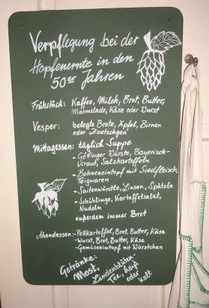 Verpflegung bei der
Hopfenernte in den
50er Jahren
Frühstück: Kaffee, Milch, Brot, Butter,
Marmelade, Käse oder Wurst
Vesper: belegte Brote, Äpfel, Birnen
oder Zwetschgen
Mittagessen: täglich Suppe
- Göttinger Würste, Bayerisch-
kraut, Salzkartoffeln
- Bohneneintopf mit Siedfleisch,
- Saitenwürstle, Linsen, Spätzle
- Schübling, Kartoffelsalat,
Nudeln
außerdem immer Brot
Abendessen: - Pellkartoffel, Brot, Butter, Käse
- Wurst, Brot, Butter, Käse
- Gemüseeintopf mit Würstchen
Getränke:
Most,
Lindenblüten-
Tee, heiß
oder
kalt